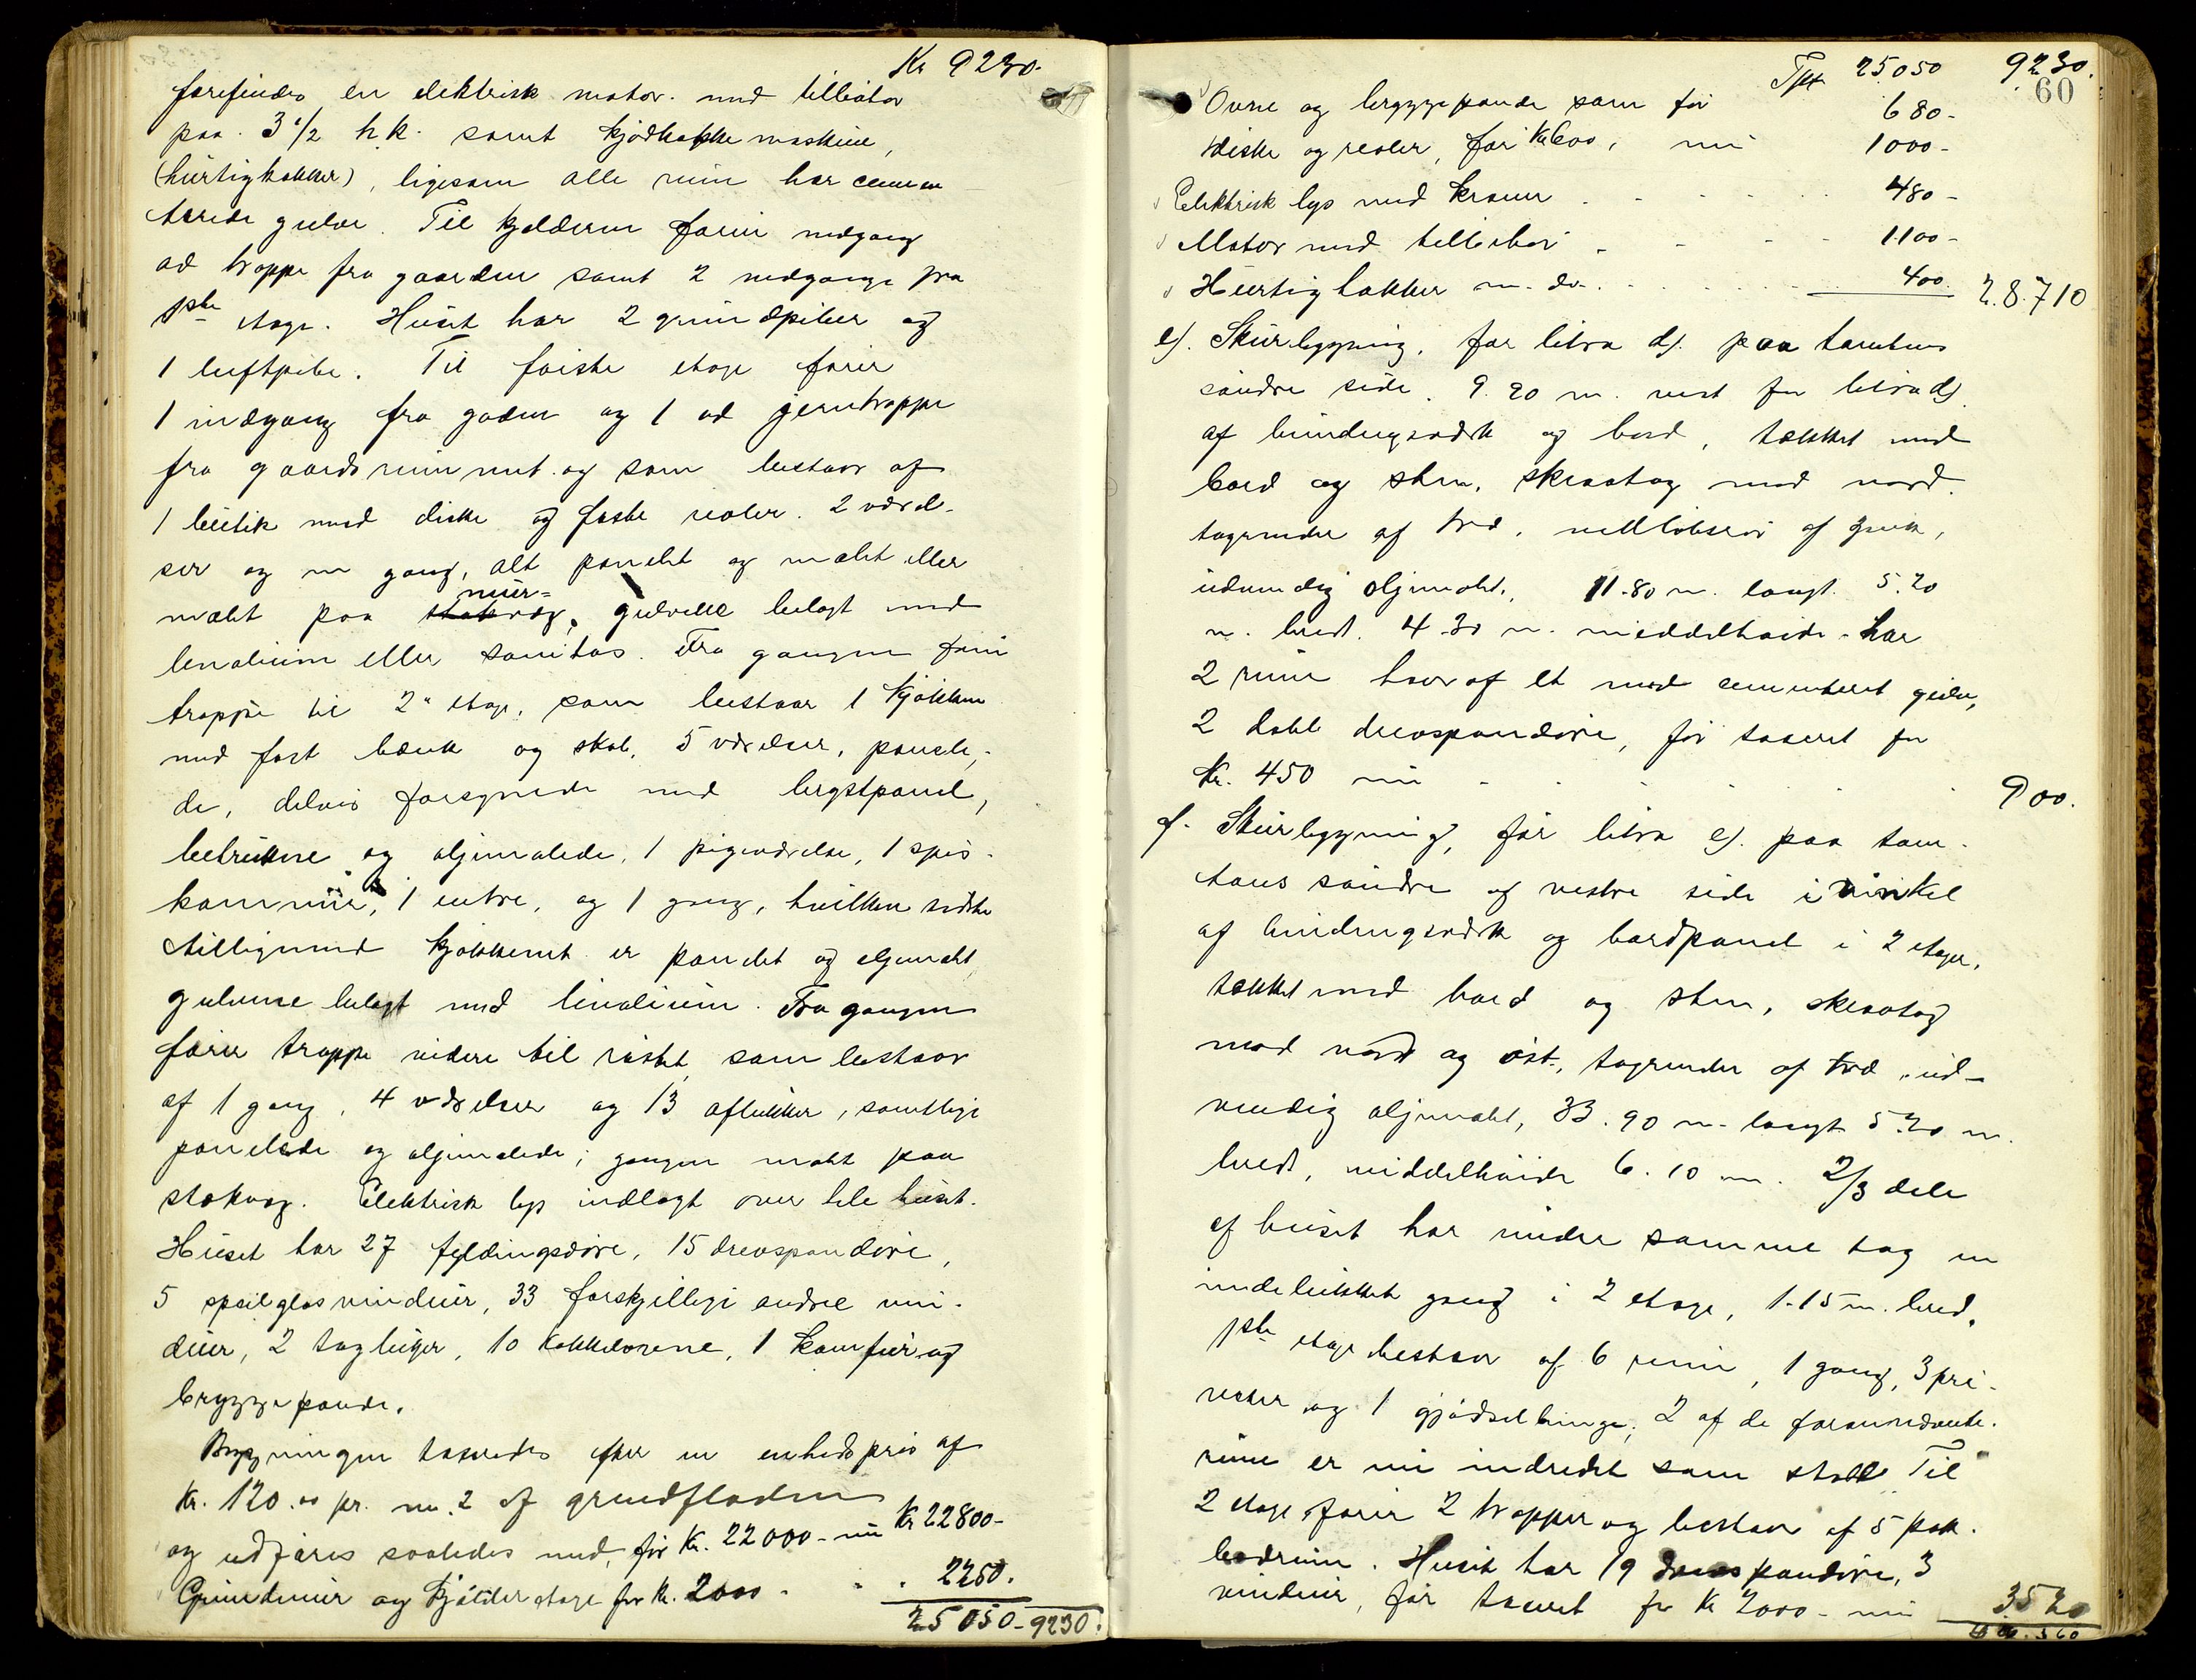 Kr 9230.
forefindes en elektrisk motor med tilbehør
paa 3 1/2 h.k. samt kjødhakkemaskine,
(hurtighakker), ligesom alle rum har cemen
terede gulve. Til kjelderen fører nedgang
ad trappe fra gaarden samt 2 nedgange fra
1ste etage. Huset har 2 grundpiber og
1 luftpibe. Til første etage fører
1 indgang fra gaden og 1 ad jerntrappe
fra gaardsrummet og som bestaar af
1 butik med diske og faste reoler. 2 værel-
ser og en gang, alt panelet og malet eller
mur=
malet paa stokvæg, gulvene belagt med
linolium eller sanitas. Fra gangen fører
trappe til 2n etage, som bestaar 1 kjøkken
med fast bænk og skab, 5 værelser, panele-
de, delvis forsynede med brystpanel,
betrukne og oljemalede, 1 pigeværelse, 1 spis-
kammer, 1 entre, og 1 gang, hvilken sidste
tilligemed kjøkkenet er panelet og oljemalt
gulvene belagt med linolium. Fra gangen
fører trappe videre til røstet, som bestaar
af 1 gang, 4 værelser og 13 aflukker, samtlige
panelede og oljemalede; gangen malt paa
stokvæg. Elektrisk lys indlagt over hele huset.
Huset har 27 fyldingsdøre, 15 drevspandøre,
5 speilglasvinduer, 33 forskjellige andre vin-
duer, 2 tagluger, 10 kakkelovne, 1 komfur og
bryggepande.
Bygningen taxeredes efter en enhedspris af
Kr. 120.00 pr. m.2 af grundfladen
og udføres saaledes med, før Kr. 22000- nu Kr 22800-
Grundmur og kjelder etage før Kr. 2000 - . . 2250.
25050-9230.
60
Tpt 25050 9230.
Ovne og bryggepande som før 680-
Diske og reoler, før Kr 600, nu 1000-
Elektrisk lys med kroner 480-
Motor med tilbehør 1100-
Hurtighakker m. do. 400. 28710
e). Skurbygning, før litra d). paa tomtens
søndre side. 9.20 m. vest for litra d).
af bindingsværk og bord, tækket med
bord og sten, skraatag mod nord.
tagrender af træ, nedløbsrør af zink,
udvendig oljemalt, 11.80 m. langt. 5.20
m. bredt. 4.30 m. middelhøide. Har
2 rum hvoraf et med cementeret gulv,
2 dobb drevspandøre, før taxeret for
Kr. 450 nu 900.
f. Skurbygning, før litra e). paa tom-
tens søndre og vestre side i vinkel
af bindingsværk og bordpanel i 2 etager,
tækket med bord og sten, skraatag
mod nord og øst, tagrender af træ, ud-
vendig oljemalet, 33.90 m. langt 5.20 m.
bredt, middelhøide 6.10 m. 2/3 dele
af huset har under samme tag en
indelukket gang i 2 etage, 1.15 m. bred.
1ste etage bestaar af 6 rum, 1 gang, 3 pri-
veter og 1 gjødselbinge; 2 af de forannævnte
rum er nu indredet som stald. Til
2 etage fører 2 trapper og bestaar af 5 pak-
bodrum. Huset har 19 drevspandøre, 3
vinduer, før taxeret for Kr 2000 - nu 3520